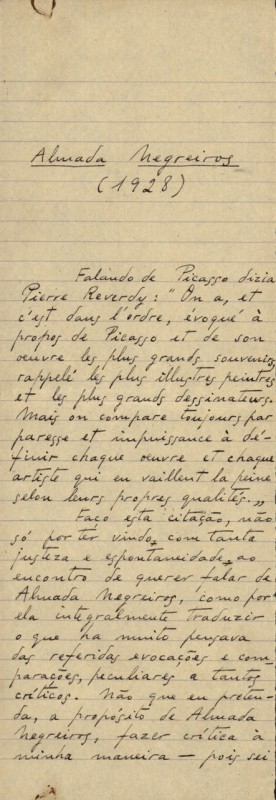 Almada Negreiros
(1928)
Falando de Picasso dizia
Pierre Reverdy: "On a, et
c'est dans l'ordre, évoqué à
propos de Picasso et de son
oeuvre les plus grands souvenirs,
rappelé les plus illustres peintres
et les plus grands dessinateurs.
Mais on compare toujours par
paresse et impuissance à dé-
finir chaque oeuvre et chaque
artiste qui en vaillent la peine
selon leurs propres qualités.„
Faço esta citação, não
só por ter vindo, com tanta
justeza e espontaneidade, ao
encontro de querer falar de
Almada Negreiros, como por
ela integralmente traduzir
o que ha muito pensava
das referidas evocações e com-
parações, peculiares a tantos
críticos. Não que eu preten-
da, a propósito de Almada
Negreiros, fazer crítica à
minha maneira — pois sei